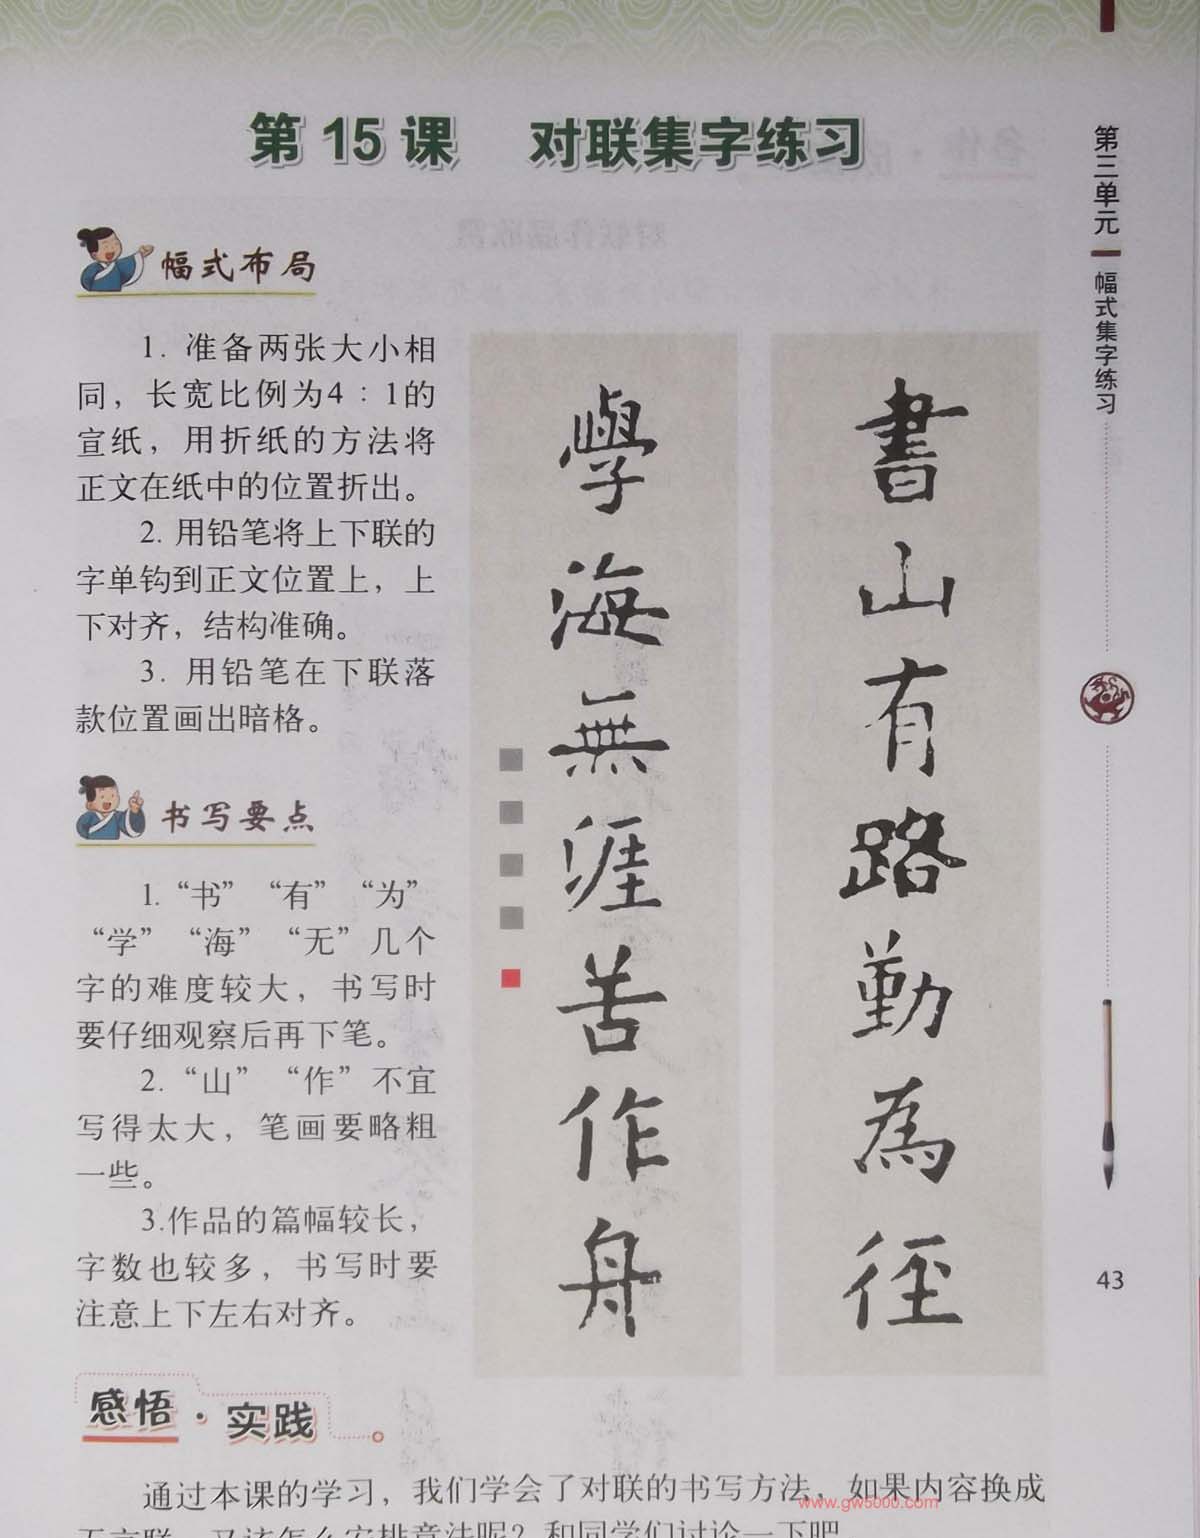 第15课 对联集字练习
幅式布局
1. 准备两张大小相
同，长宽比例为4∶1的
宣纸，用折纸的方法将
正文在纸中的位置折出。
2. 用铅笔将上下联的
字单钩到正文位置上，上
下对齐，结构准确。
3. 用铅笔在下联落
款位置画出暗格。
书写要点
1.“书”“有”“为”
“学”“海”“无”几个
字的难度较大，书写时
要仔细观察后再下笔。
2.“山”“作”不宜
写得太大，笔画要略粗
一些。
3.作品的篇幅较长，
字数也较多，书写时要
注意上下左右对齐。
書山有路勤為徑
學海無涯苦作舟
感悟·实践
通过本课的学习，我们学会了对联的书写方法，如果内容换成
五言联，又该怎么安排章法呢？和同学们讨论一下吧
第三单元
幅式集字练习
43
www.gw5000.com